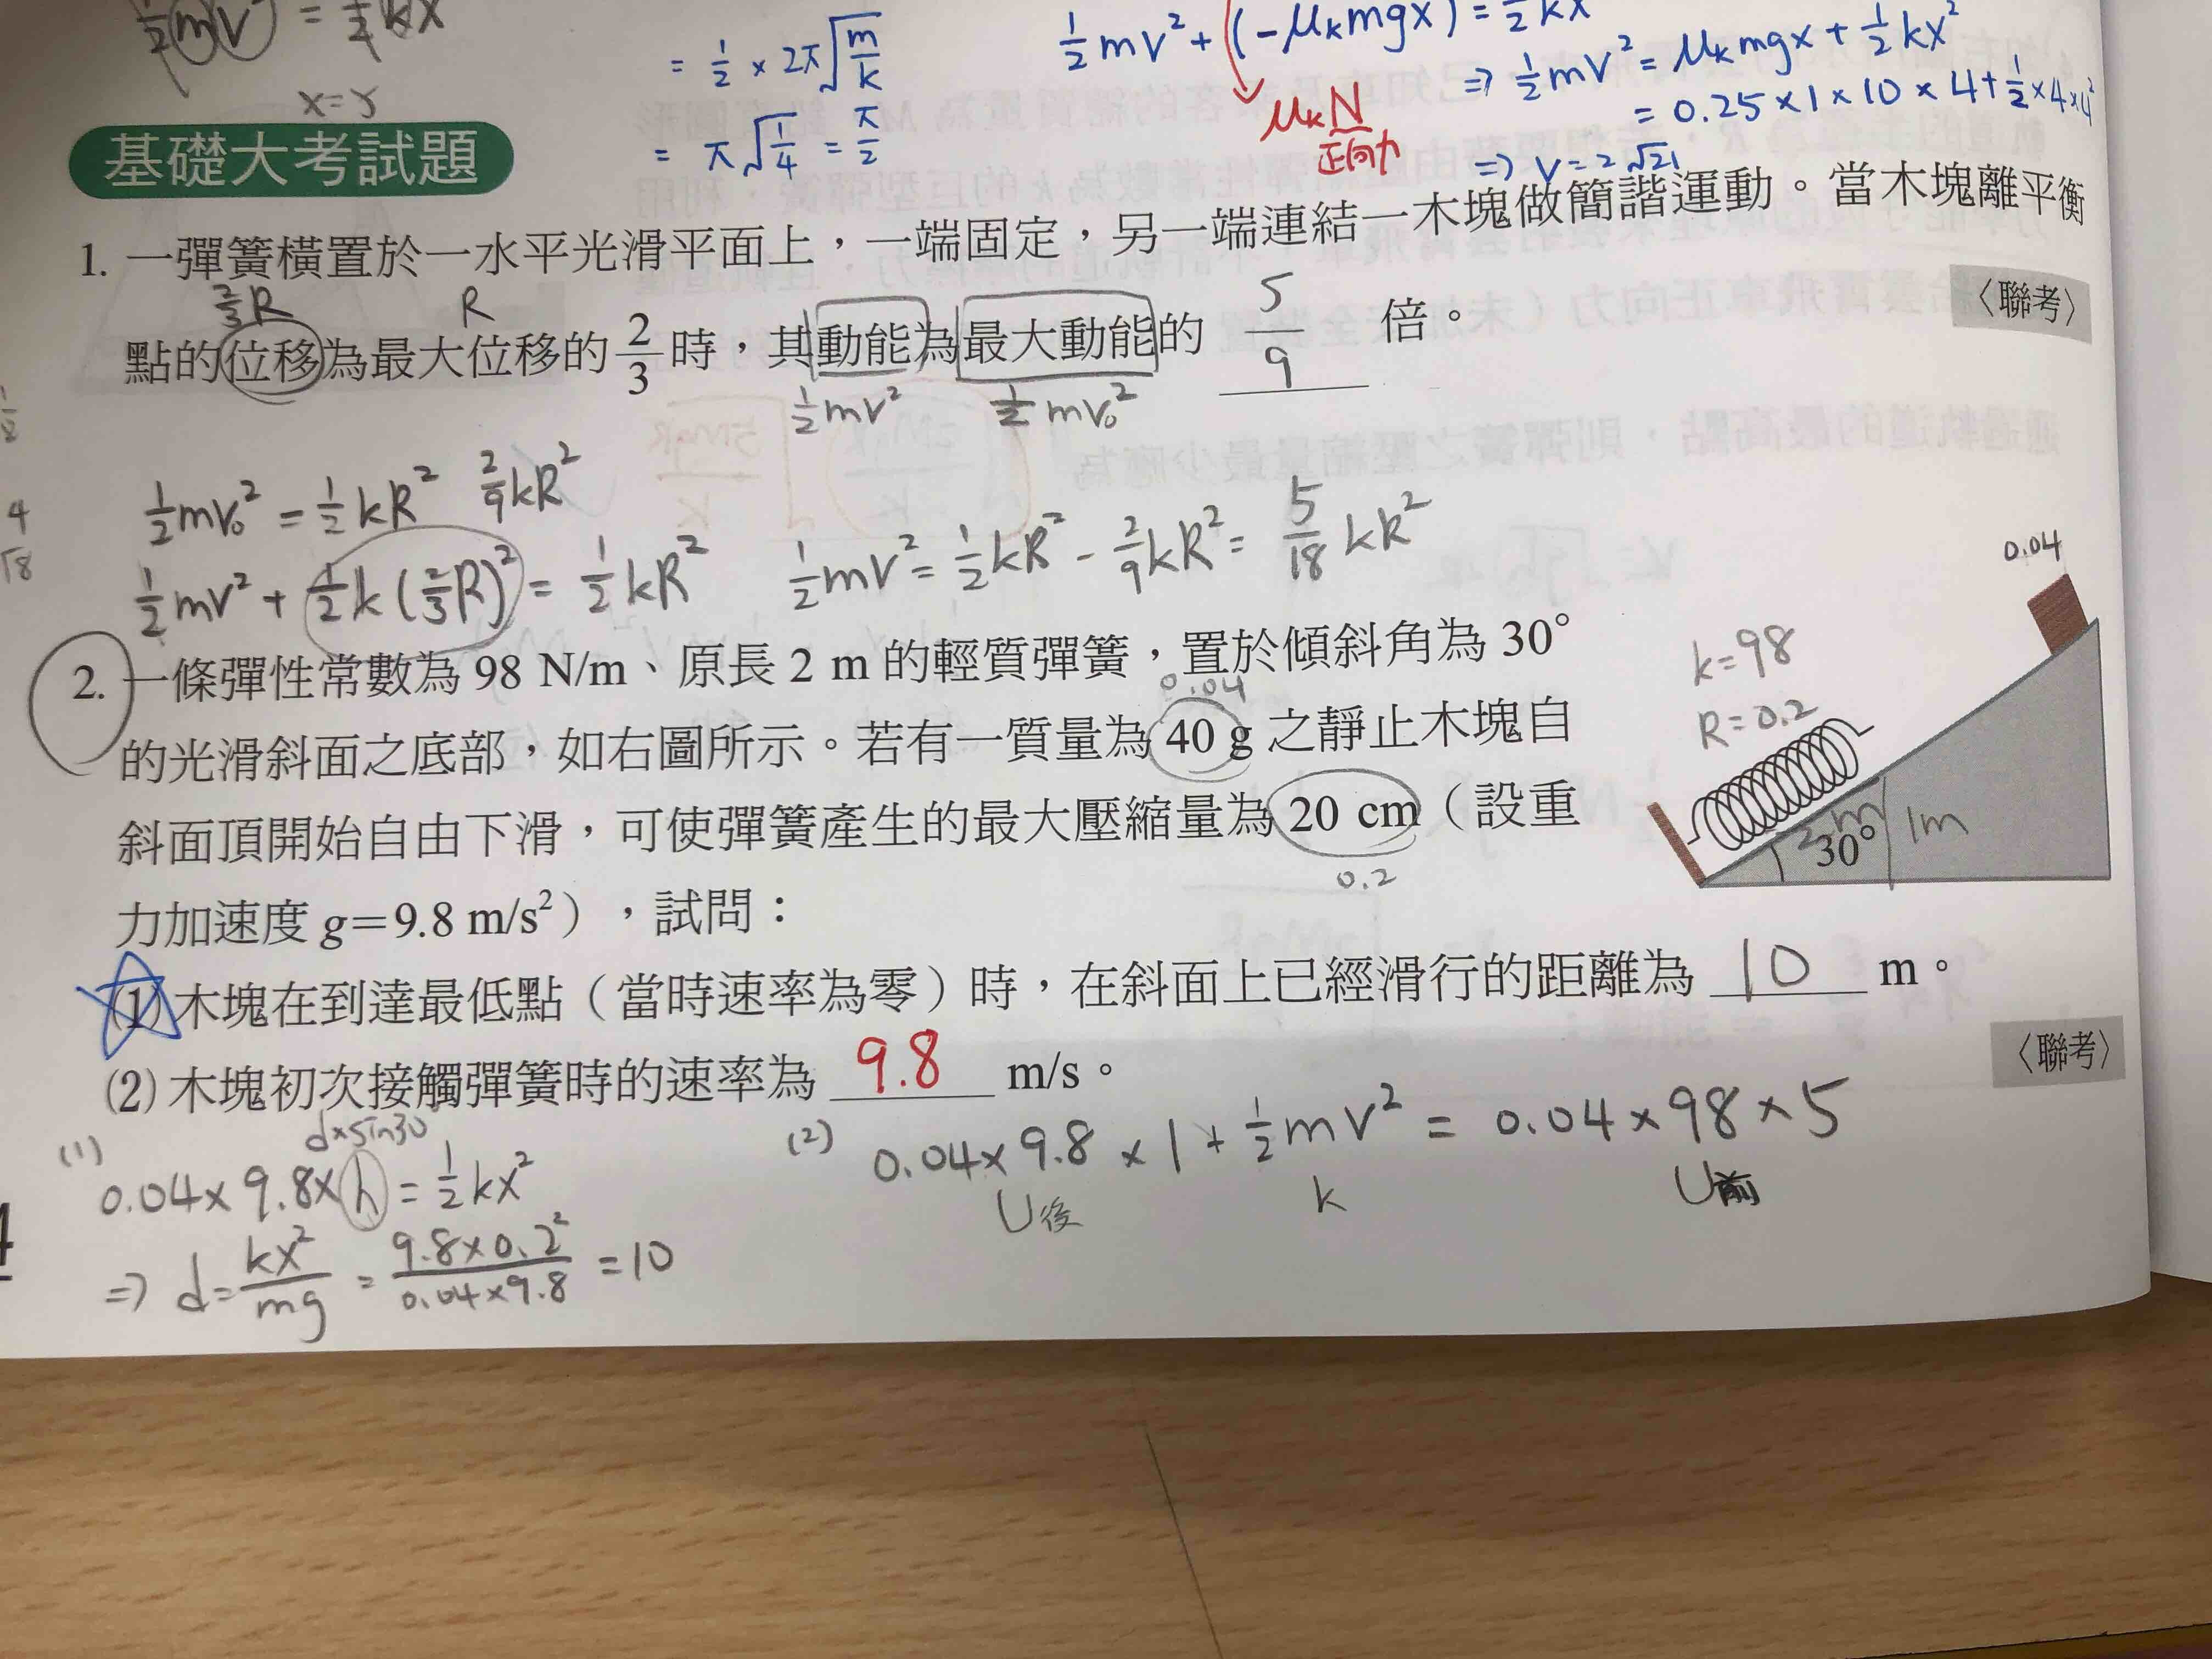 ½mv² = ½kx
x=5
= ½ × 2π√(m/k)
= π√(1/4) = π/2
½mv² + (-μₖmgx) = ½kx
μₖN
正向力
⇒ ½mv² = μₖmgx + ½kx²
= 0.25×1×10×4+½×4×4²
⇒ v=2√21
基礎大考試題
1. 一彈簧橫置於一水平光滑平面上，一端固定，另一端連結一木塊做簡諧運動。當木塊離平衡
⅔R R
點的位移為最大位移的 2/3 時，其動能為最大動能的 5/9 倍。 〈聯考〉
½mv² ½mv₀²
½mv₀² = ½kR² 2/9kR²
½mv² + ½k(⅔R)² = ½kR² ½mv² = ½kR² - 2/9kR² = 5/18 kR²
2. 一條彈性常數為 98 N/m、原長 2 m 的輕質彈簧，置於傾斜角為 30°
0.04
的光滑斜面之底部，如右圖所示。若有一質量為 40 g 之靜止木塊自
斜面頂開始自由下滑，可使彈簧產生的最大壓縮量為 20 cm（設重
0.2
力加速度 g＝9.8 m/s²），試問：
0.04
k=98
R=0.2
2m
30°
1m
(1) 木塊在到達最低點（當時速率為零）時，在斜面上已經滑行的距離為 10 m。
(2) 木塊初次接觸彈簧時的速率為 9.8 m/s。 〈聯考〉
(1)
d×sin30°
0.04×9.8×h = ½kx²
⇒ d = kx²/mg = 9.8×0.2²/0.04×9.8 = 10
(2) 0.04×9.8×1+½mv² = 0.04×98×5
U後 k U前